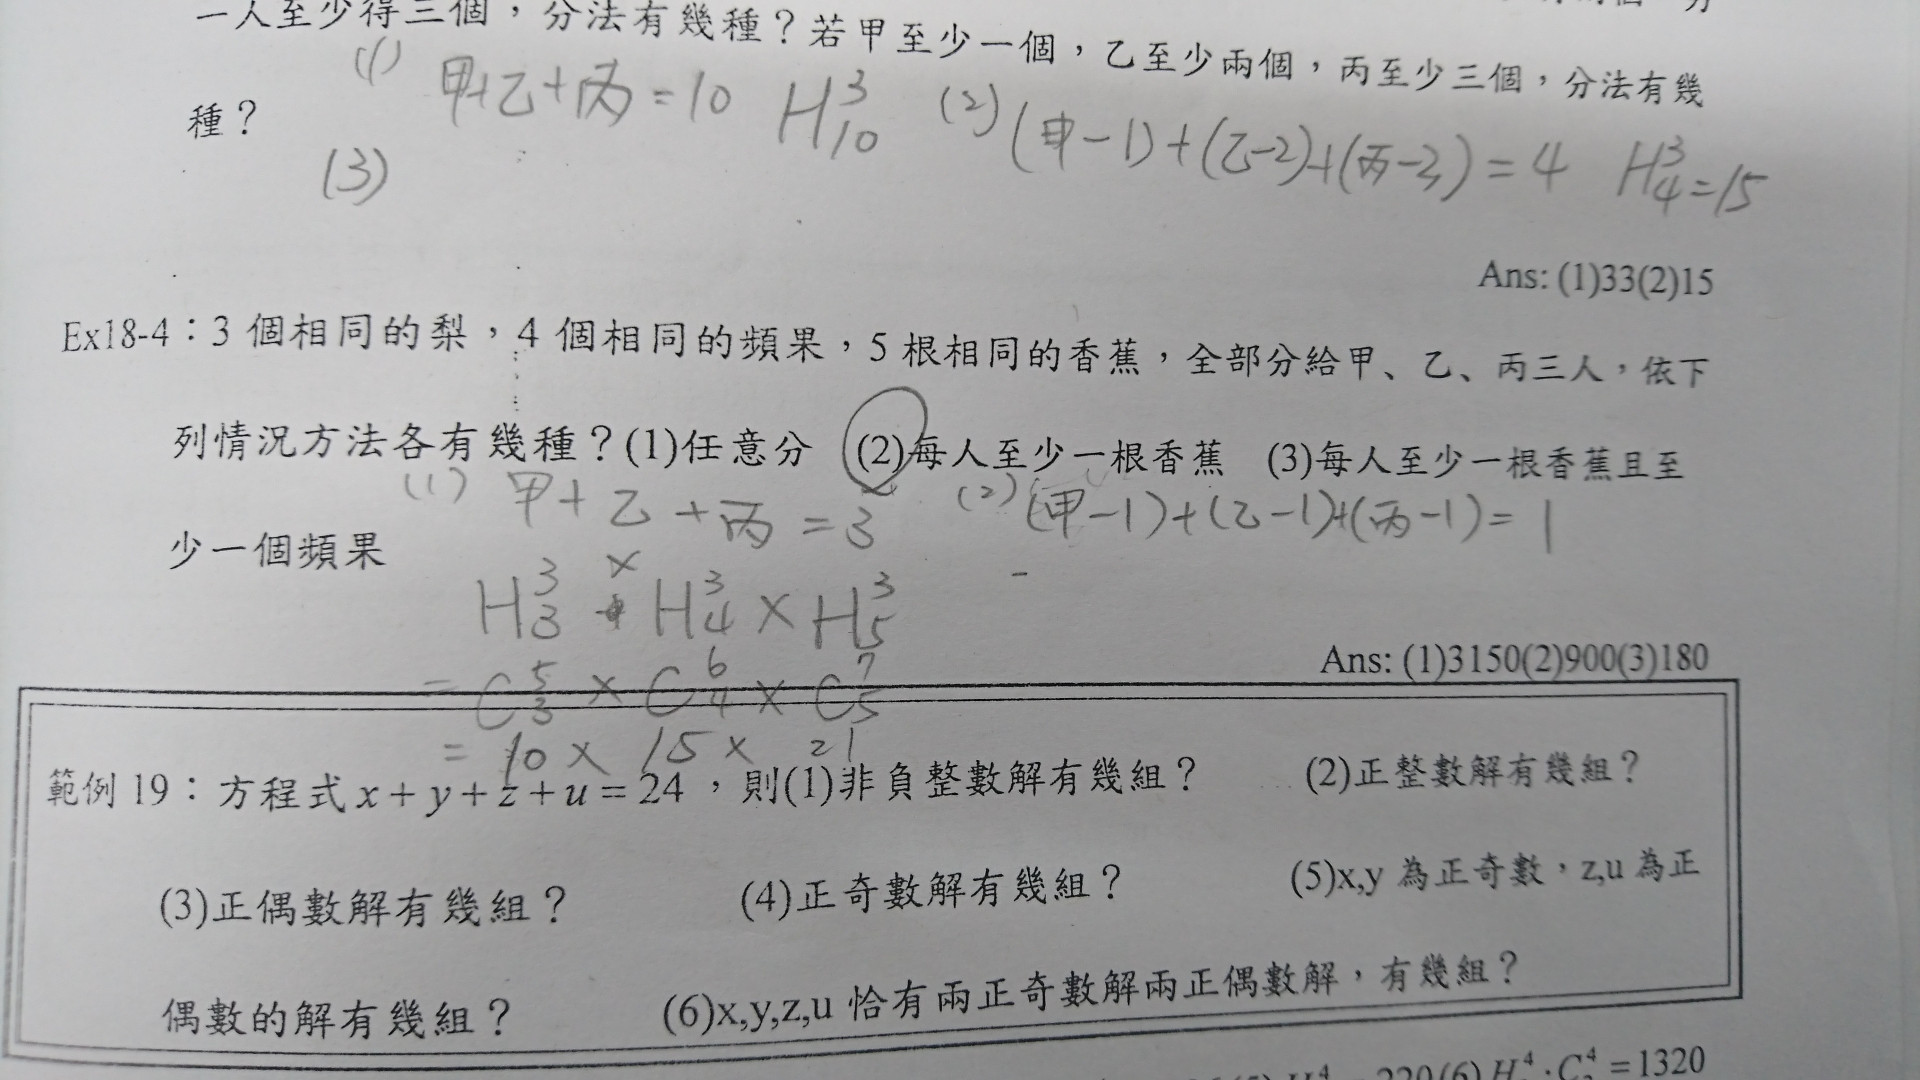 一人至少得三個，分法有幾種？若甲至少一個，乙至少兩個，丙至少三個，分法有幾
種？
(1) 甲+乙+丙=10 H³₁₀ (2) (甲-1)+(乙-2)+(丙-3)=4 H³₄=15
(3)
Ans: (1)33(2)15
Ex18-4：3 個相同的梨，4 個相同的頻果，5 根相同的香蕉，全部分給甲、乙、丙三人，依下
列情況方法各有幾種？(1)任意分 (2)每人至少一根香蕉 (3)每人至少一根香蕉且至
(1) 甲+乙+丙=3 (2) (甲-1)+(乙-1)+(丙-1)=1
少一個頻果
H³₃ × H³₄ × H³₅
Ans: (1)3150(2)900(3)180
= C⁵₃ × C⁶₄ × C⁷₅
= 10 × 15 × 21
範例 19：方程式 x + y + z + u = 24 ，則(1)非負整數解有幾組？ (2)正整數解有幾組？
(3)正偶數解有幾組？ (4)正奇數解有幾組？ (5)x,y 為正奇數，z,u 為正
偶數的解有幾組？ (6)x,y,z,u 恰有兩正奇數解兩正偶數解，有幾組？
=1320